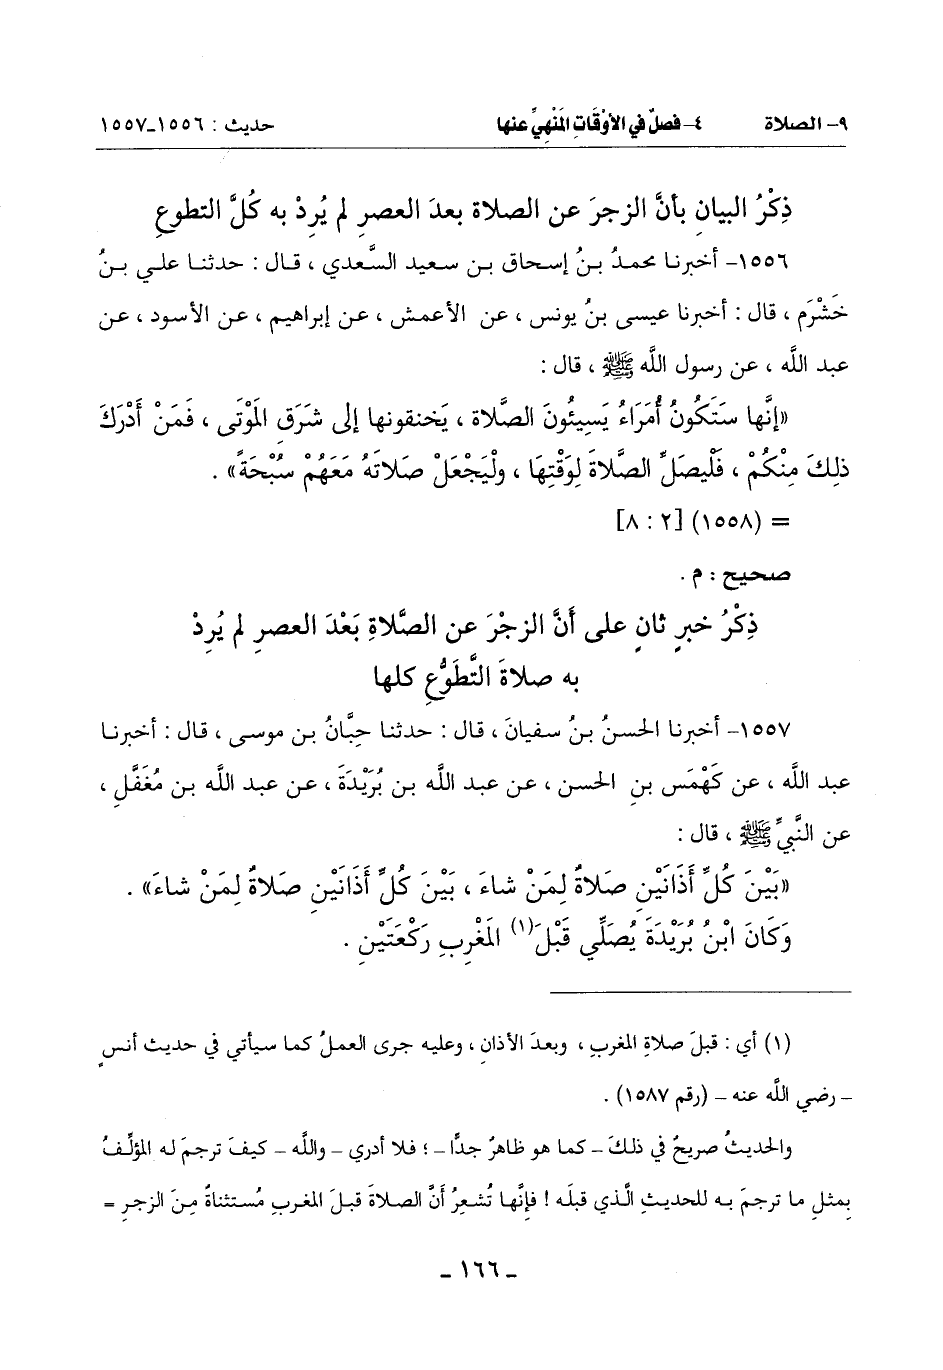 ٩- الصلاة ٤- فصلٌ في الأوْقَاتِ المَنْهِيِّ عنها حديث : ١٥٥٦-١٥٥٧
ذِكْرُ البيانِ بأنَّ الزجرَ عن الصلاة بعدَ العصرِ لم يُرِدْ به كُلَّ التطوعِ
١٥٥٦- أخبرنا محمدُ بنُ إسحاق بن سعيد السَّعدي ، قال : حدثنا علي بنُ
خَشْرَم ، قال : أخبرنا عيسى بنُ يونس ، عن الأعمش ، عن إبراهيم ، عن الأسود ، عن
عبد اللَّه ، عن رسول اللَّه ﷺ ، قال :
«إنَّها ستَكُونُ أُمَرَاءُ يَسيئُونَ الصَّلاة ، يَخنقونها إلى شَرَقِ المَوْتَى ، فَمَنْ أَدْرَكَ
ذلِكَ مِنْكُمْ ، فَلْيصَلِّ الصَّلاةَ لِوَقْتِهَا ، ولْيَجْعَلْ صَلاتَهُ مَعَهُمْ سُبْحَةً» .
= (١٥٥٨) [٢ : ٨]
صحيح : م .
ذِكْرُ خبرٍ ثانٍ على أَنَّ الزجْرَ عن الصَّلاةِ بَعْدَ العصرِ لم يُرِدْ
به صلاةَ التَّطَوُّعِ كلها
١٥٥٧- أخبرنا الحسنُ بنُ سفيانَ ، قال : حدثنا حِبَّانُ بن موسى ، قال : أخبرنا
عبد اللَّه ، عن كَهْمَس بنِ الحسن ، عن عبد اللَّه بن بُرَيْدَةَ ، عن عبد اللَّه بن مُغَفَّلِ ،
عن النَّبيِّ ﷺ ، قال :
«بَيْنَ كُلِّ أَذَانَيْنِ صَلاةٌ لمَنْ شاءَ ، بَيْنَ كُلِّ أَذَانَيْنِ صَلاةٌ لمَنْ شاءَ» .
وَكَانَ ابْنُ بُرَيْدَةَ يُصَلِّي قَبْلَ(١) المَغْرِبِ رَكْعَتَيْنِ .
(١) أي : قبلَ صلاةِ المغربِ ، وبعدَ الأذانِ ، وعليه جرى العملُ كما سيأتي في حديث أنسٍ
– رضي اللَّه عنه – (رقم ١٥٨٧) .
والحديثُ صريحٌ في ذلكَ – كما هو ظاهرٌ جدًّا – ؛ فلا أدري – واللَّه – كيفَ ترجمَ له المؤلِّفُ
بمثلِ ما ترجمَ به للحديثِ الَّذي قبلَه ! فإنَّها تُشعِرُ أنَّ الصلاةَ قبلَ المغربِ مُستثناةٌ مِنَ الزجرِ =
– ١٦٦ –